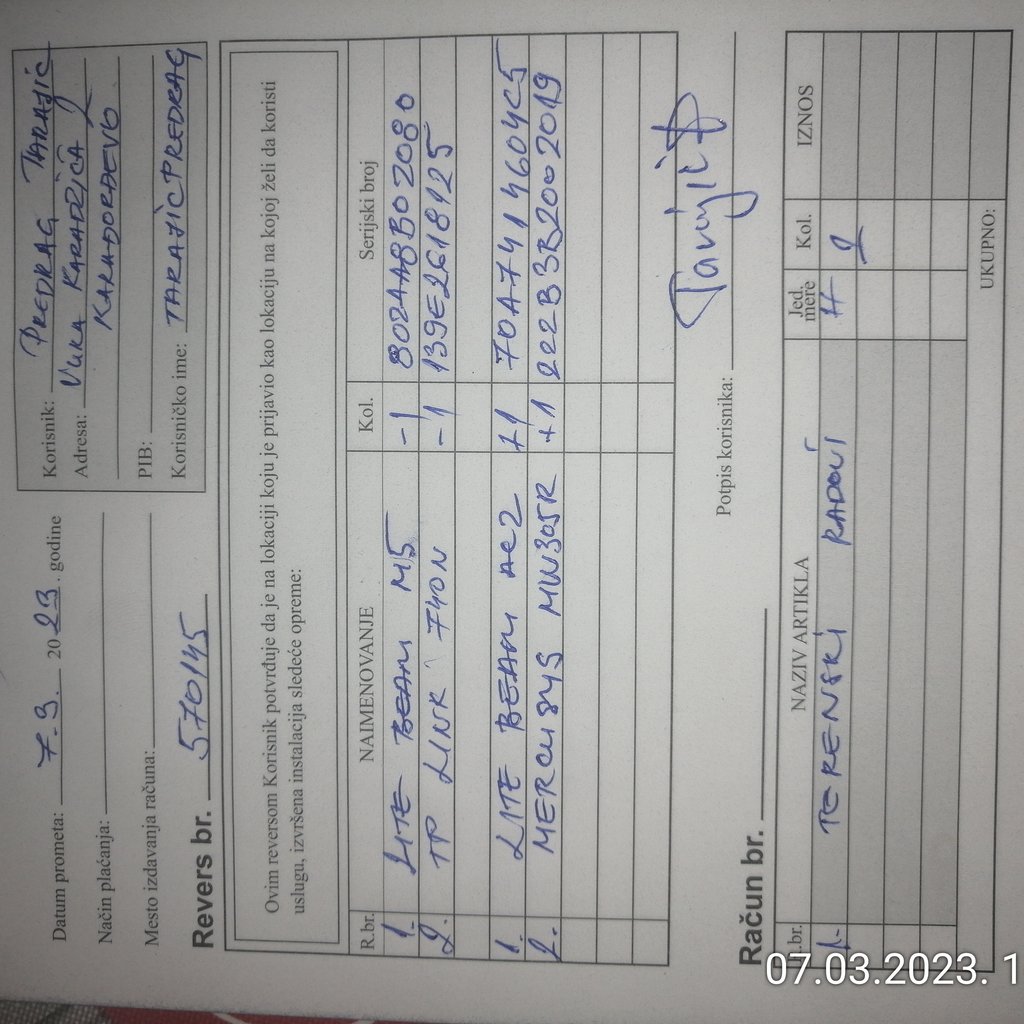 Datum prometa: 7.3. 2023. godine
Način plaćanja:
Mesto izdavanja računa:
Revers br. 570145
Korisnik: PREDRAG TARAJIC
Adresa: VUKA KARADŽIĆA 2
KARAĐORĐEVO
PIB:
Korisničko ime: TARAJICPREDRAG
Ovim reversom Korisnik potvrđuje da je na lokaciji koju je prijavio kao lokaciju na kojoj želi da koristi
uslugu, izvršena instalacija sledeće opreme:
R.br. NAIMENOVANJE Kol. Serijski broj
1. LITE BEAM M5 -1 802AA8B02080
2. TP LINK 740N -1 139E2618425
1. LITE BEAM AC2 +1 70A7414604C5
2. MERCUSYS MW305R +1 222B3B2002019
Potpis korisnika: Tarajić P
Račun br.
R.br. NAZIV ARTIKLA Jed. mere Kol. IZNOS
1. TERENSKI RADOVI H 2
UKUPNO:
07.03.2023. 1